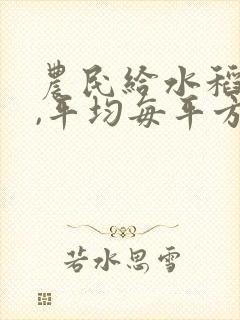 農民給水稻
,平均每平方
若水思雪